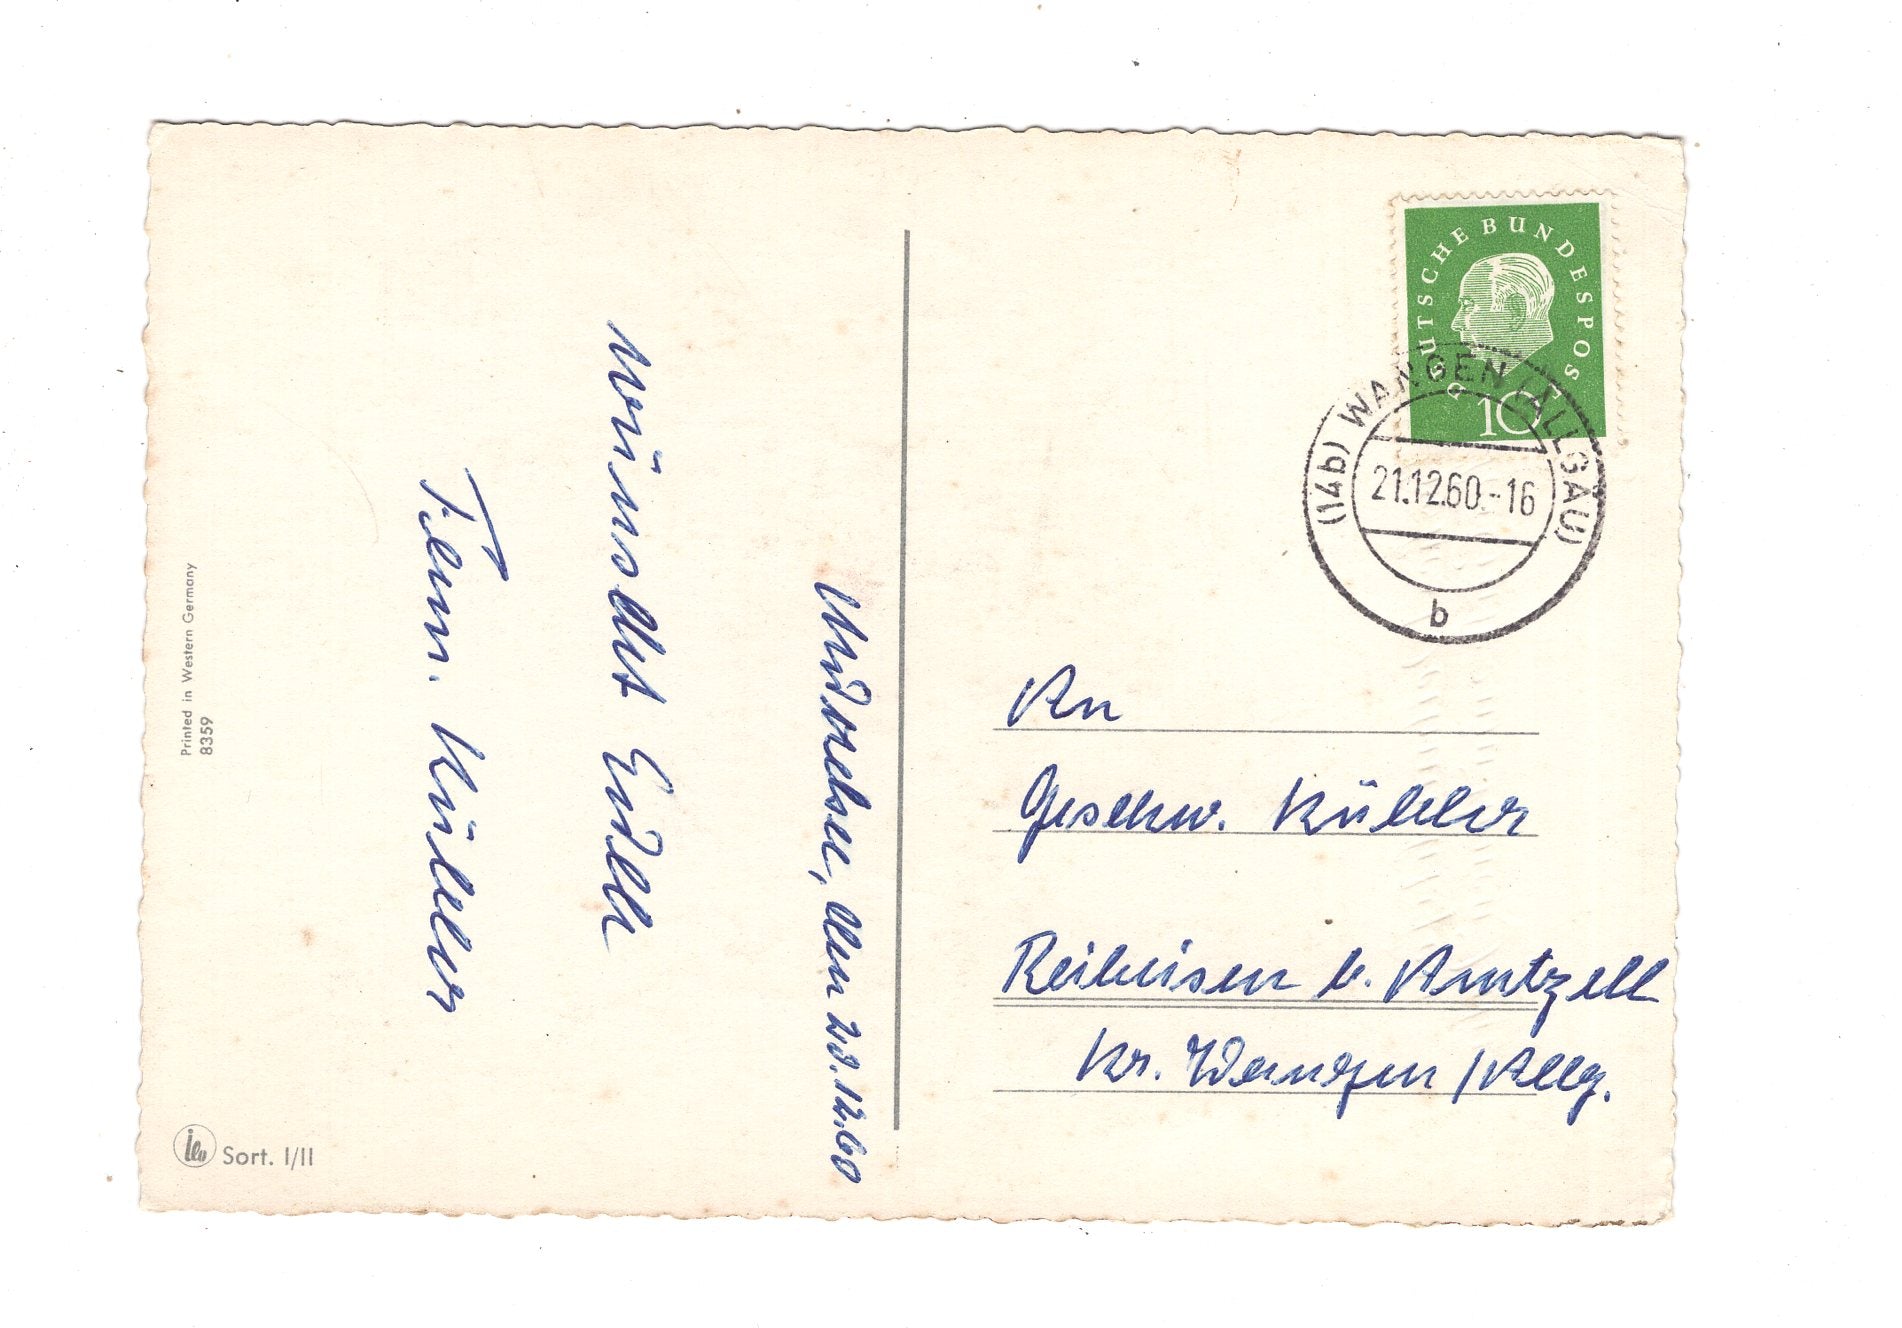 wünscht Euch
Fam. Kübler
den 20.12.60
Printed in Western Germany
8359
Sort. I/II
DEUTSCHE BUNDESPOST
10
(14b) WANGEN (ALLGÄU)
21.12.60.-16
b
An
Geschw. Kübler
b. Amtzell
Kr. Wangen /Allg.